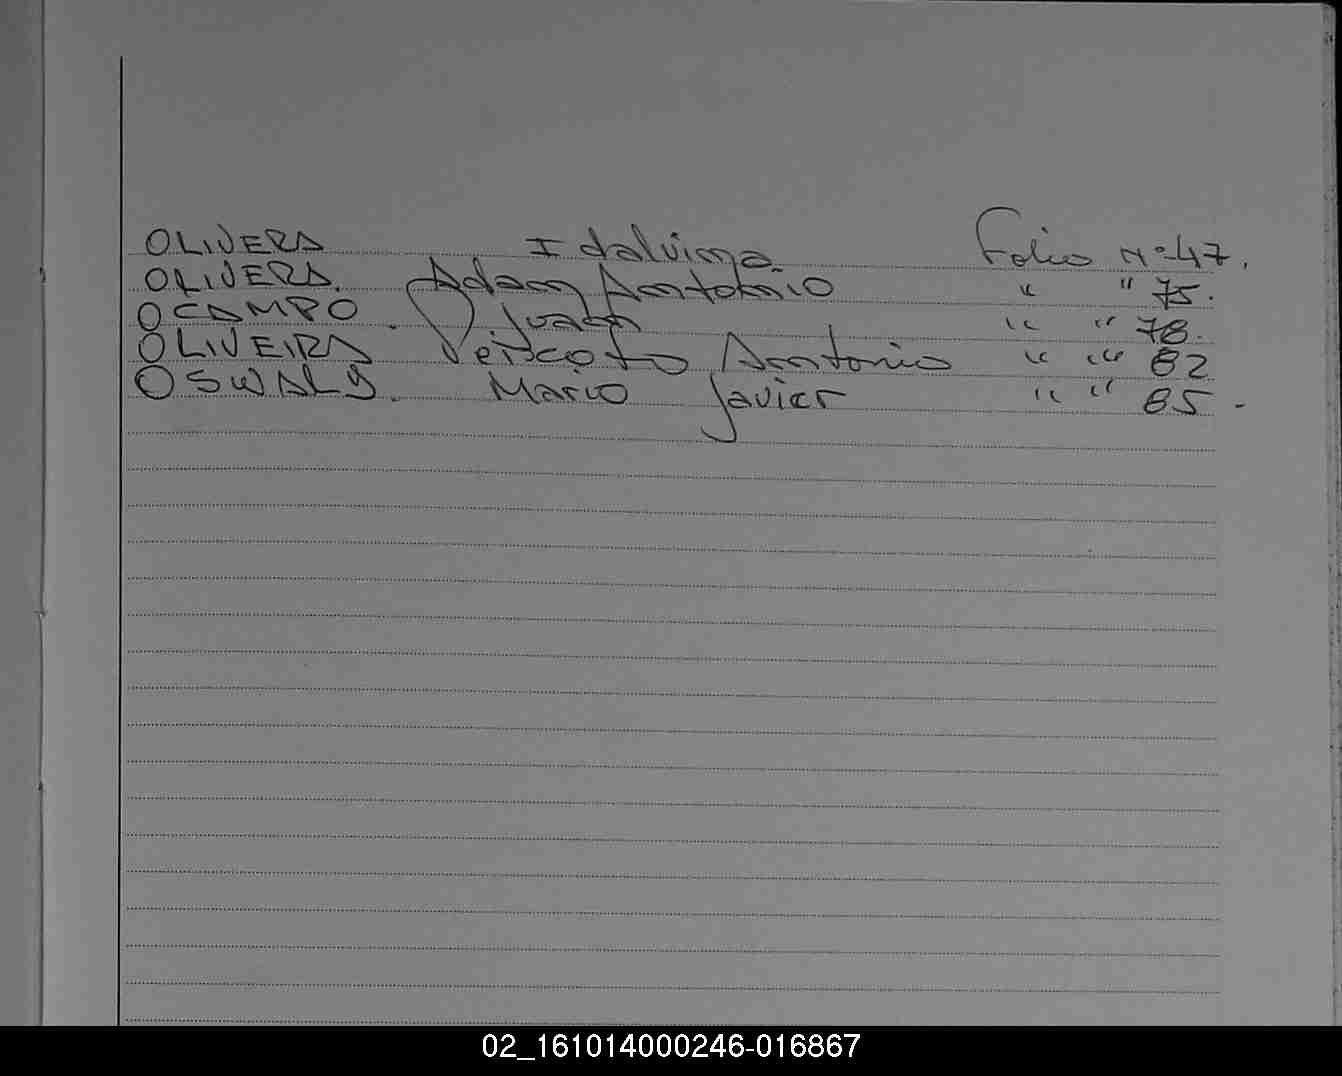 OLIVERA Idalvina Folio Nº 47.
OLIVERA. Adam Antonio " " 75.
OCAMPO . Juan " " 78.
OLIVEIRA Peiscoto Antonio " " 82
OSWALY. Mario Javier " " 85 -
02_161014000246-016867